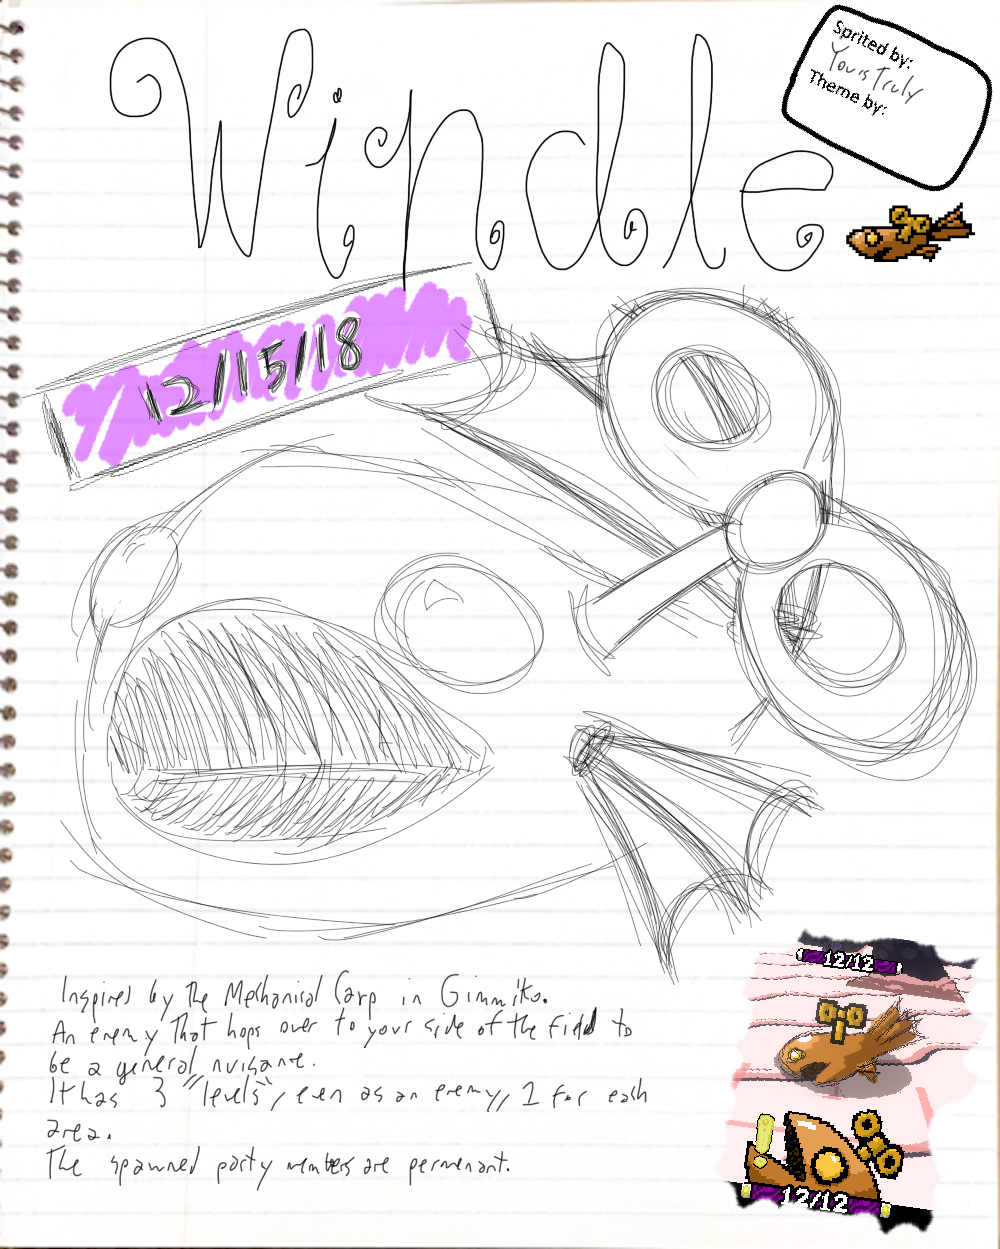 Windle
Sprited by:
Yours Truly
Theme by:
12/15/18
Inspired by the Mechanical Carp in Gimmiko.
An enemy that hops over to your side of the field to
be a general nuisance.
It has 3 "levels", even as an enemy, 1 for each
area.
The spawned party members are permenant.
12/12
12/12